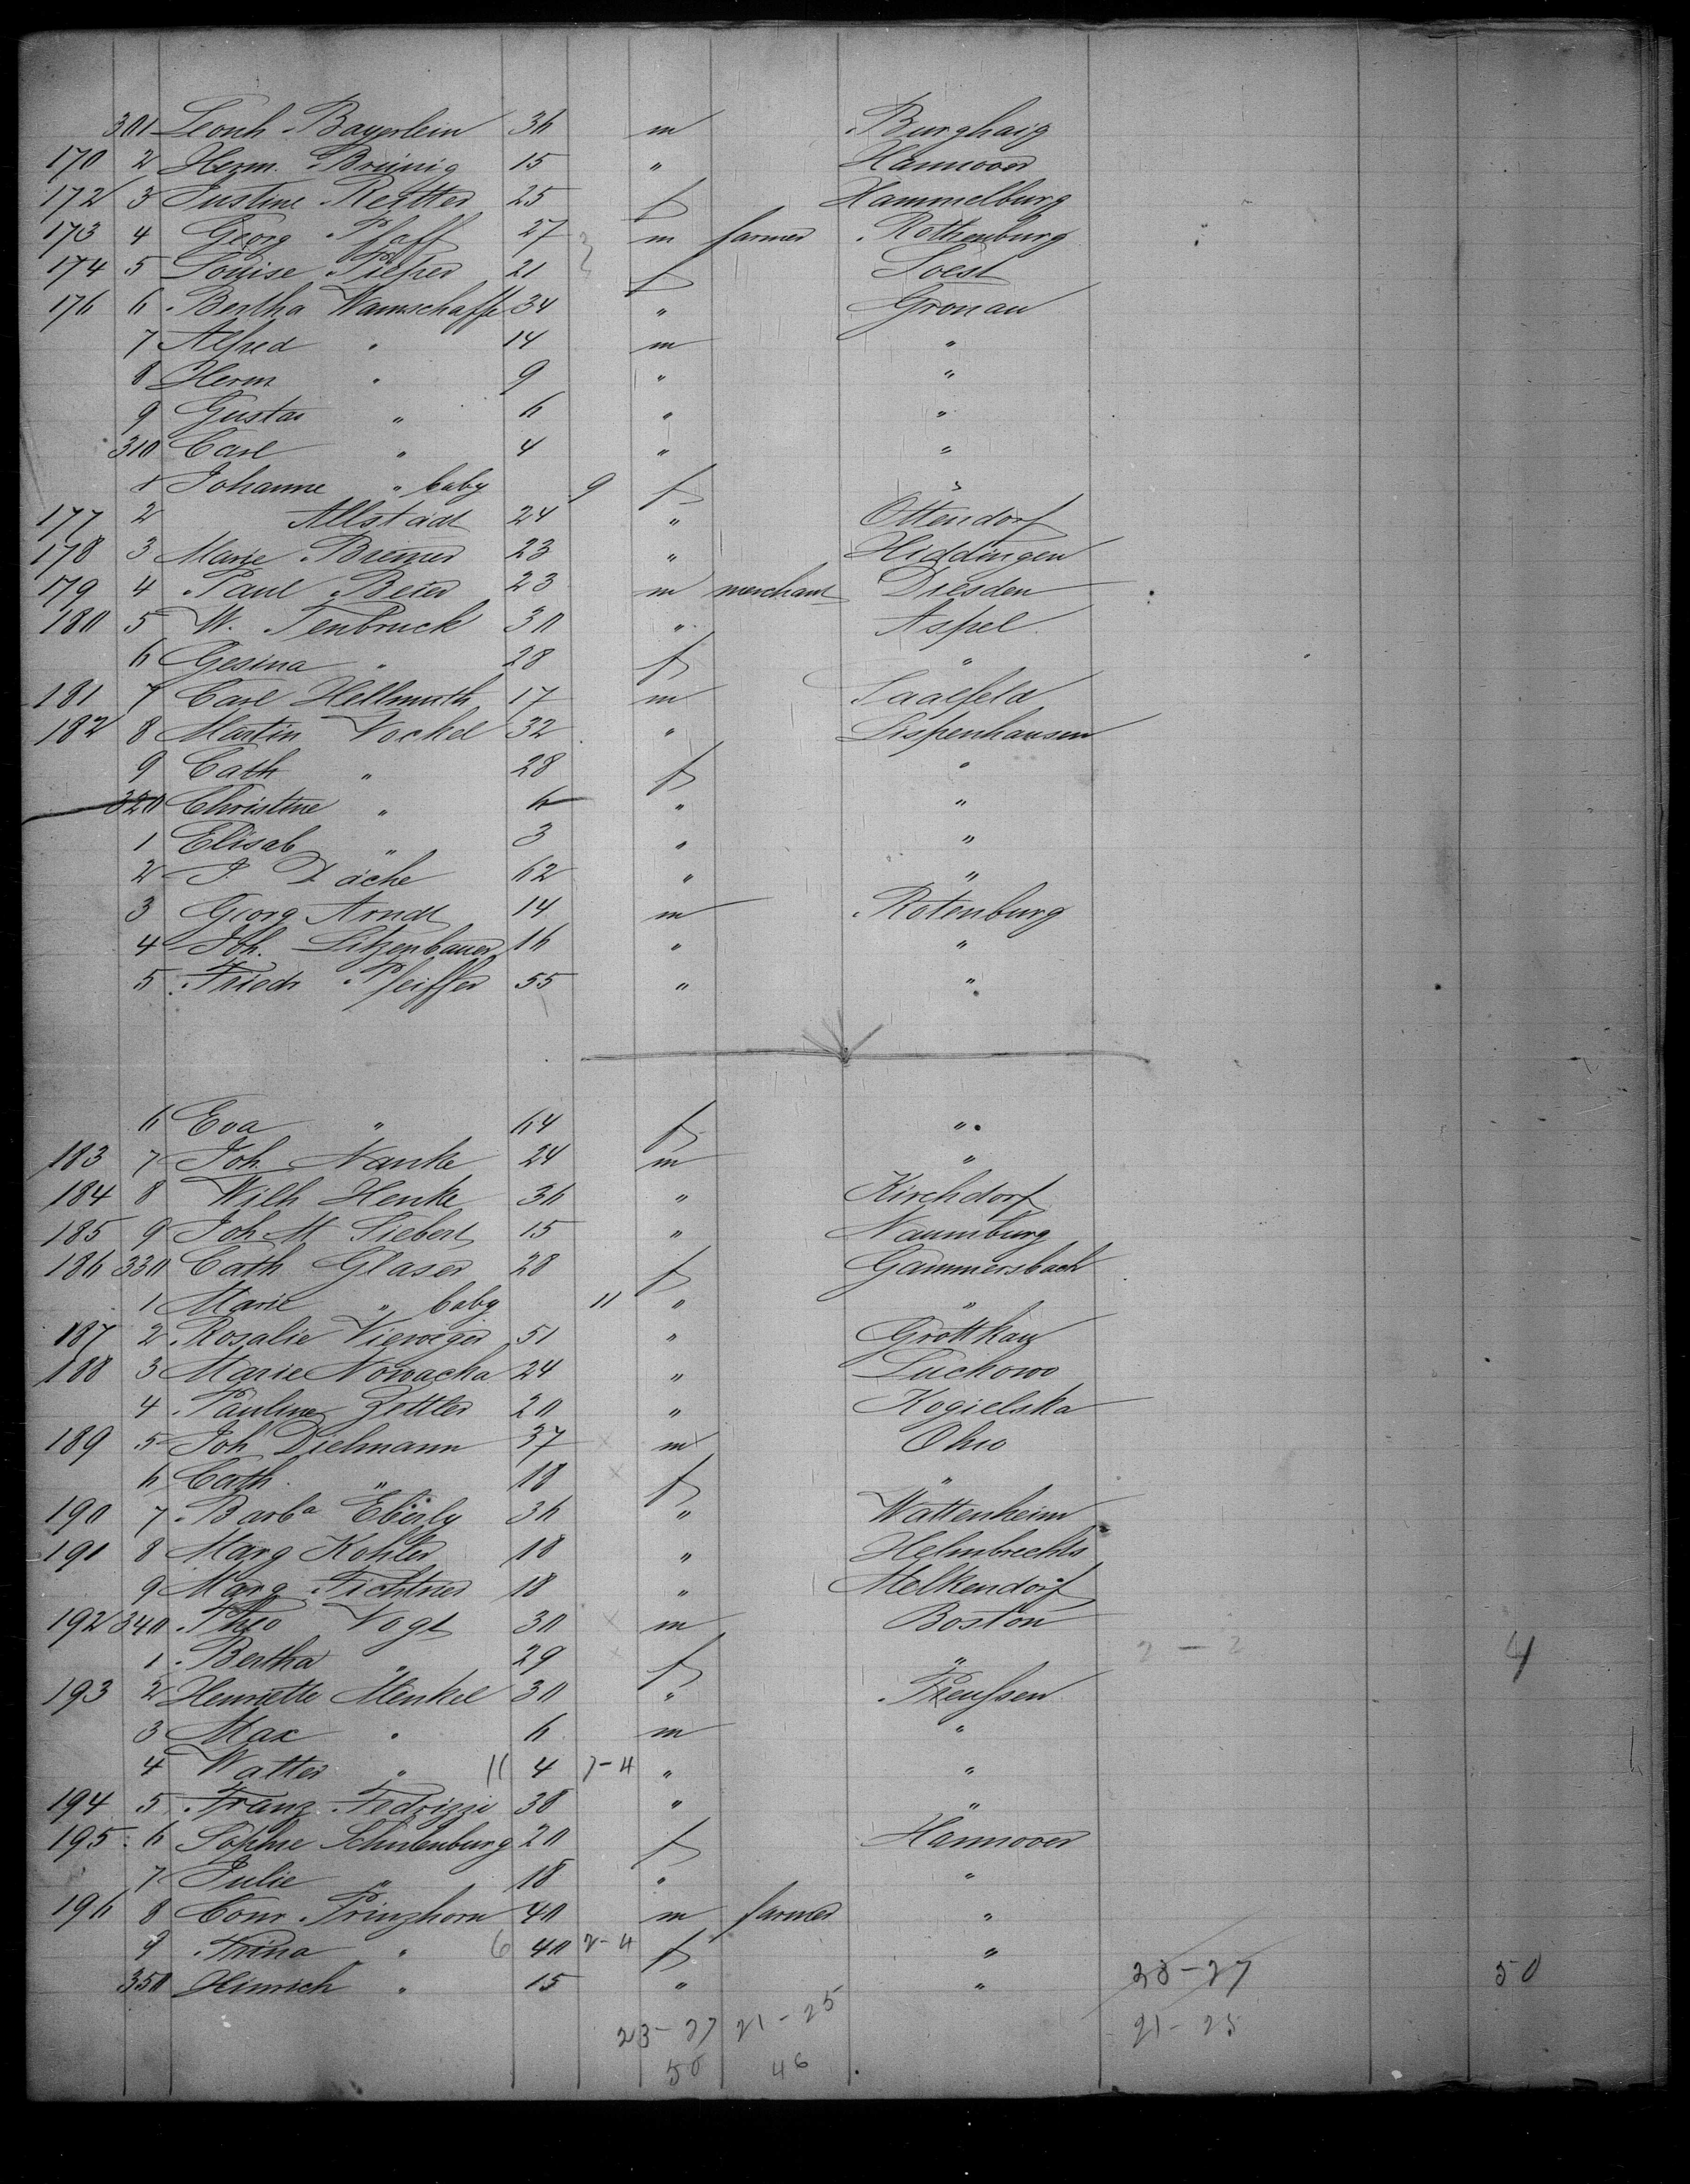 301 Leonh. Bayerlein 36 m Burghaig
170 2 Herm. Breinig 15 " Hannover
172 3 Justine Reutter 25 f Hammelburg
173 4 Georg Pfaff 27 m farmer Rothenburg
174 5 Louise Pieper 21 f Soest
176 6 Bertha Wamschaffe 34 " Gronau
7 Alfred " 14 m "
8 Herm " 9 " "
9 Gustav " 6 " "
310 Carl " 4 " "
1 Johanne " baby 9 f "
177 2 Allstadt 24 " Ottendorf
178 3 Marie Bremer 23 " Hiddingen
179 4 Paul Beter 23 m merchant Dresden
180 5 W. Tenbruck 30 " Aspel
6 Gesina " 28 f "
181 7 Carl Hellmuth 17 m Saalfeld
182 8 Martin Vockel 32 " Lispenhausen
9 Cath " 28 f "
320 Christine " 6 " "
1 Elisab " 3 " "
2 J Däche 62 " "
3 Georg Arndt 14 m Rotenburg
4 Joh. Litzenbauer 16 " "
5 Friedr Pfeiffer 55 " "
6 Eva " 64 f "
183 7 Joh. Nanke 24 m "
184 8 Wilh Henke 36 " Kirchdorf
185 9 Joh M Siebert 15 " Naumburg
186 330 Cath Glaser 28 f Gammersbach
1 Marie " baby 11 " "
187 2 Rosalie Vieweger 51 " Grottkau
188 3 Marie Nowacka 24 " Luckowo
4 Pauline Zettler 20 " Kogielska
189 5 Joh Dielmann 37 m Ohio
6 Cath. " 18 f "
190 7 Barba Eberly 36 " Wattenheim
191 8 Marg Kohler 18 " Helmbrechts
9 Marg Fichtner 18 " Melkendorf
192 340 Theo Vogt 30 m Boston
1 Bertha " 29 f " 2 - 2 4
193 2 Henriette Menkel 30 " Preussen
3 Max " 6 m "
4 Walter " 11 4 7-4 " "
194 5 Franz Fedrizzi 38 " "
195 6 Sophie Schulenburg 20 f Hannover
7 Julie " 18 " "
196 8 Conr Prinzhorn 40 m farmer "
9 Trina " 6 40 2-4 f "
350 Hinrich " 15 " " 23-27 50
23-27 21-25 21-25
50 46